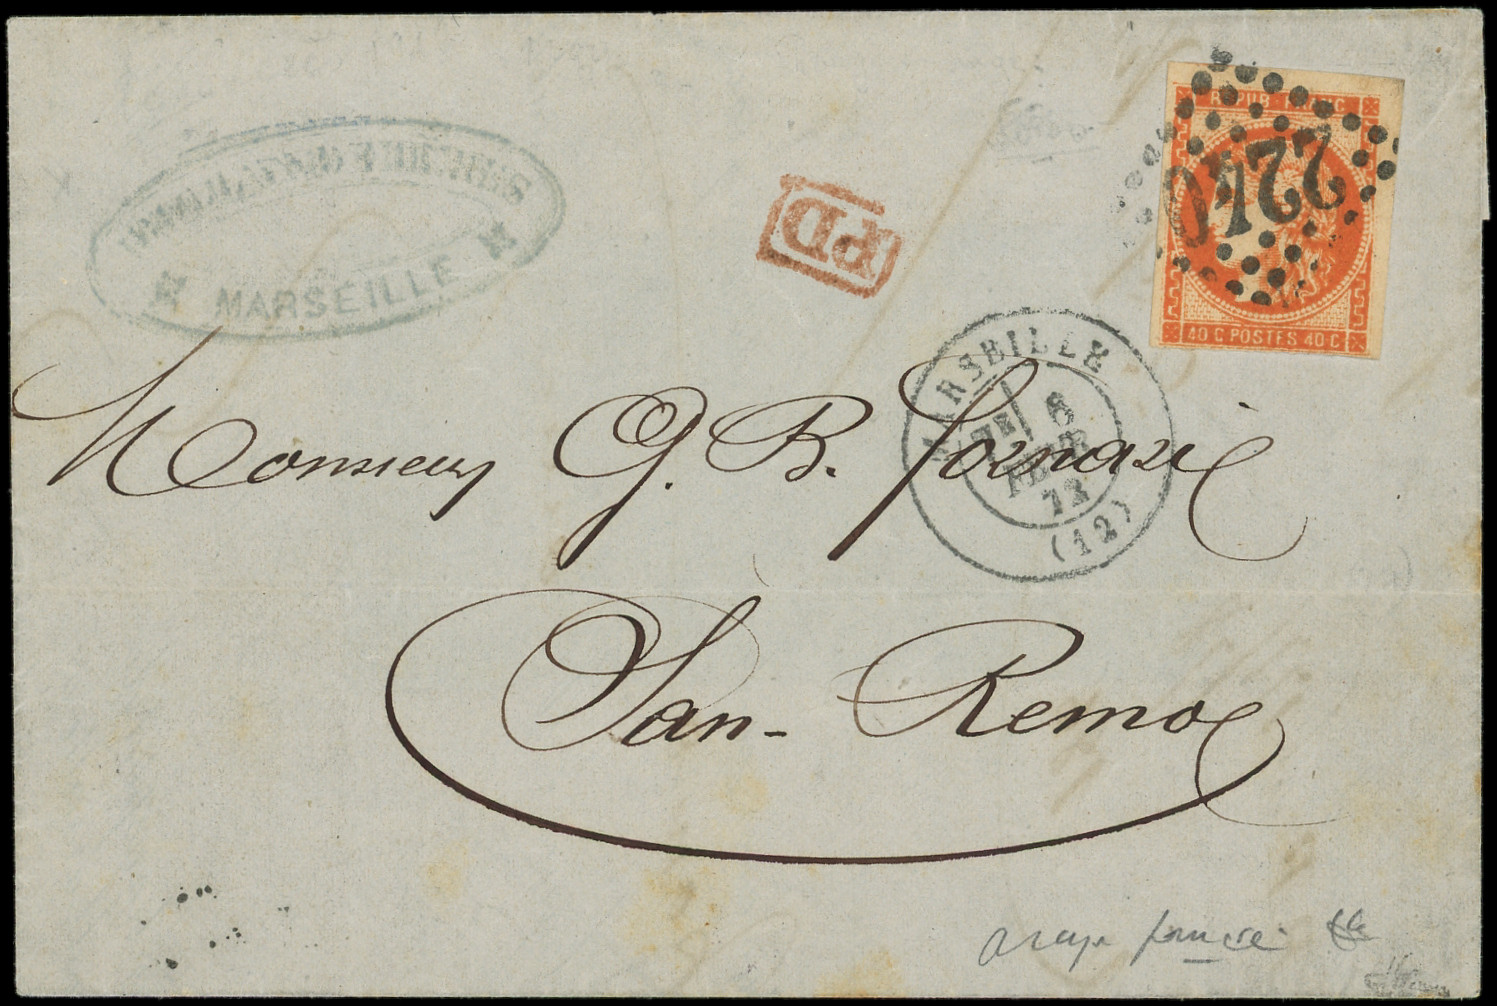 FRERES
MARSEILLE
PD
REPUB. FRANC
2240
40 C POSTES 40 C
MARSEILLE
6
FEVR
72
(12)
Monsieur G. B. Fornari
San-Remo
orange foncée